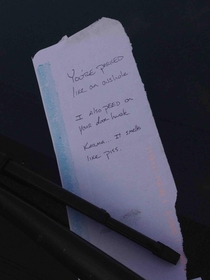 You're parked
like an asshole
I also peed on
your door handle
Karma. It smells
like piss.